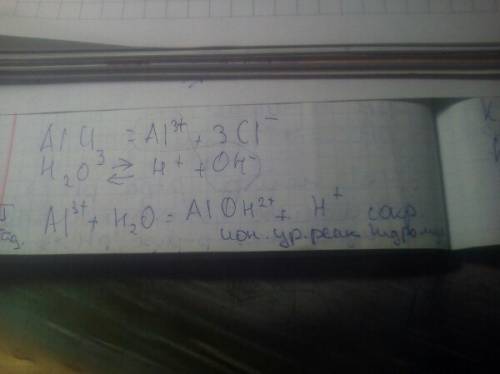 AlCl₃ = Al³⁺ + 3Cl⁻
H₂O ⇄ H⁺ + OH⁻
I Al³⁺ + H₂O = AlOH²⁺ + H⁺ сокр
ион. ур. реак гидрол